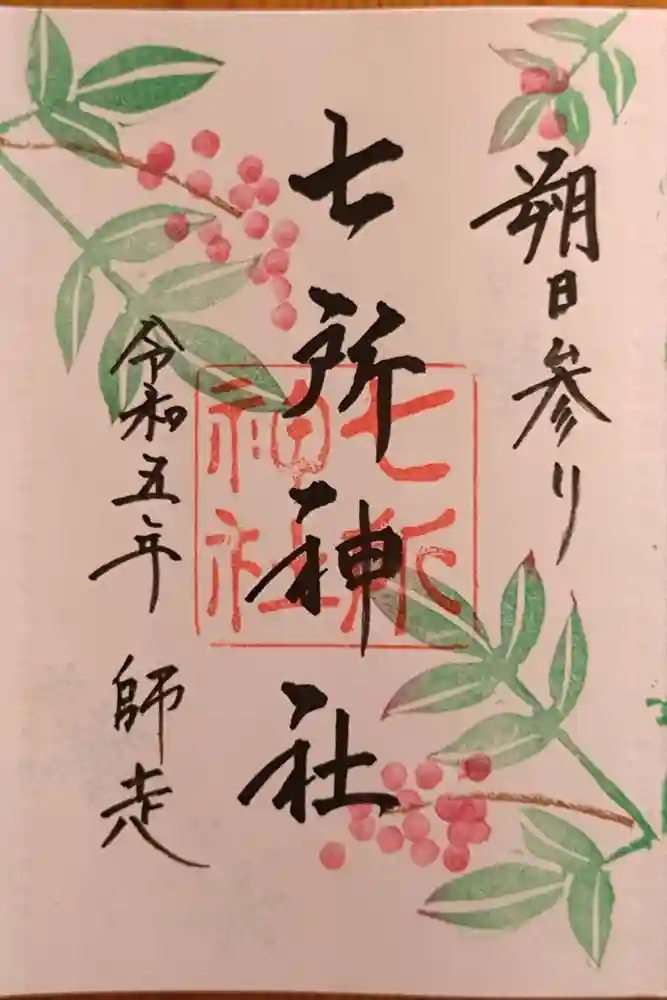 朔日参り
七所神社
七所神社
令和五年 師走